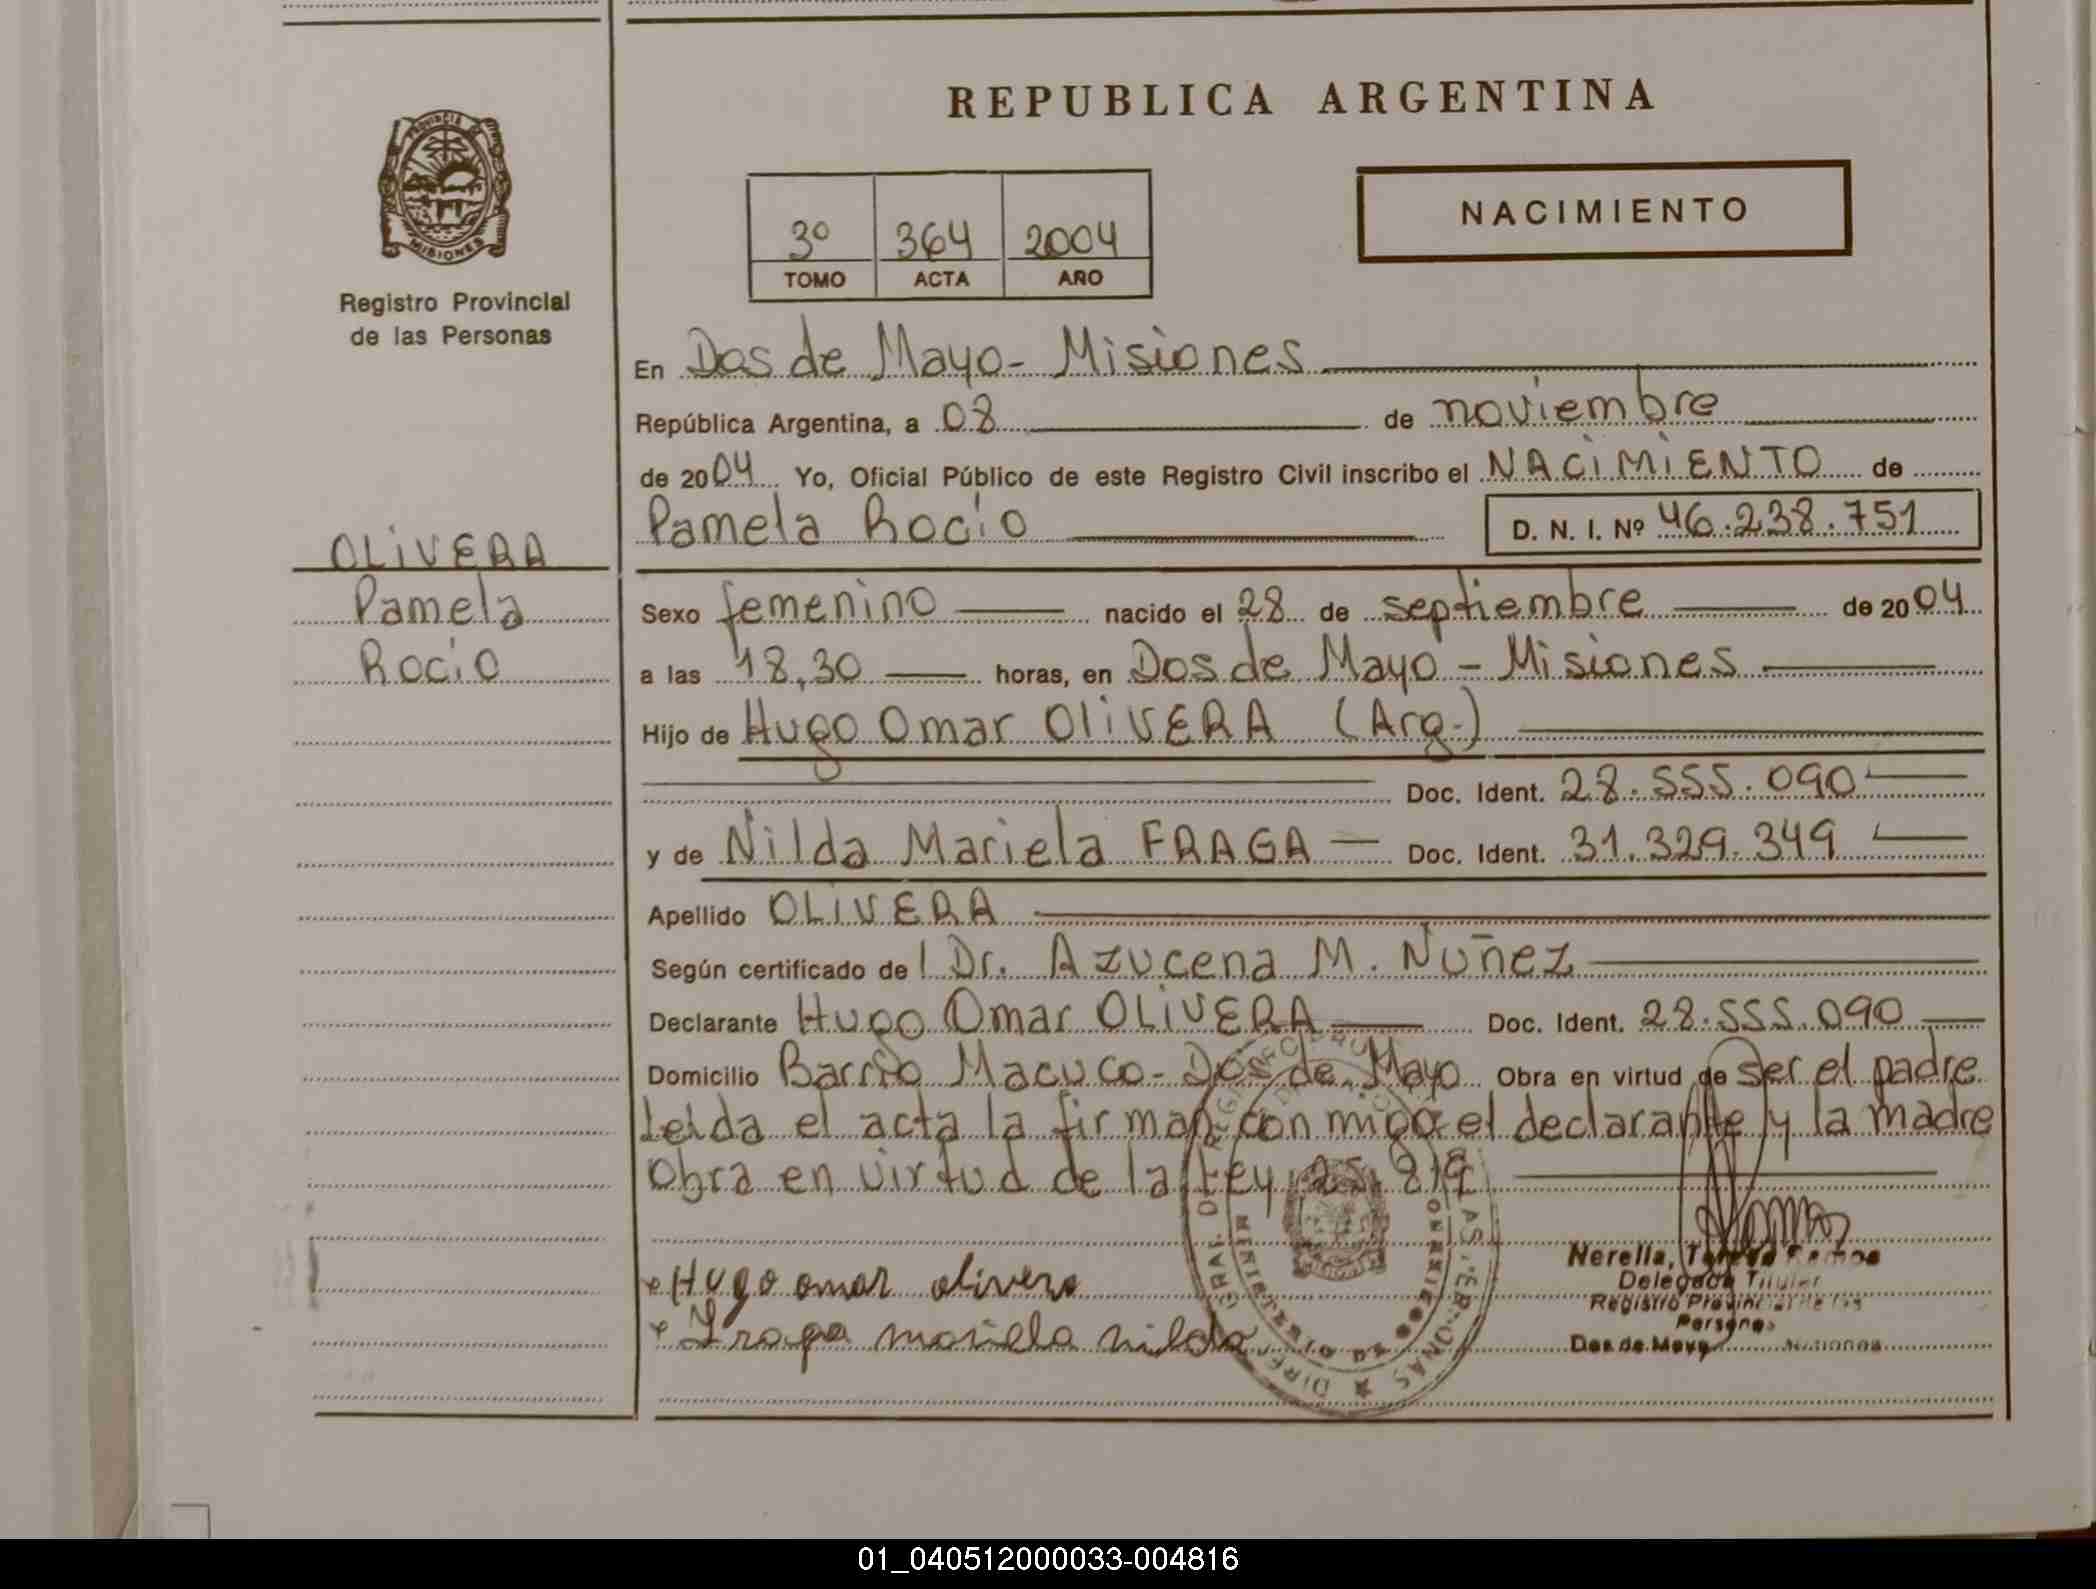 REPUBLICA ARGENTINA
PROVINCIA DE
MISIONES
Registro Provincial
de las Personas
NACIMIENTO
3º 364 2004
TOMO ACTA AÑO
En Dos de Mayo - Misiones
República Argentina, a 08 de noviembre
de 2004 Yo, Oficial Público de este Registro Civil inscribo el NACIMIENTO de
Pamela Rocío D. N. I. Nº 46.238.751
OLIVERA
Pamela
Rocío
Sexo femenino nacido el 28 de septiembre de 2004
a las 18,30 horas, en Dos de Mayo - Misiones
Hijo de Hugo Omar OLIVERA (Arg.)
Doc. Ident. 28.555.090
y de Nilda Mariela FRAGA Doc. Ident. 31.329.349
Apellido OLIVERA
Según certificado de Dr. Azucena M. Nuñez
Declarante Hugo Omar OLIVERA Doc. Ident. 28.555.090
Domicilio Barrio Macuco - Dos de Mayo Obra en virtud de ser el padre
Leida el acta la firman conmigo el declarante y la madre
Obra en virtud de la Ley 25.819
Hugo omar olivera
Fraga mariela nilda
Nerella, Teresa Ramos
Delegada Titular
Registro Provincial de las
Personas
Dos de Mayo Misiones
01_040512000033-004816